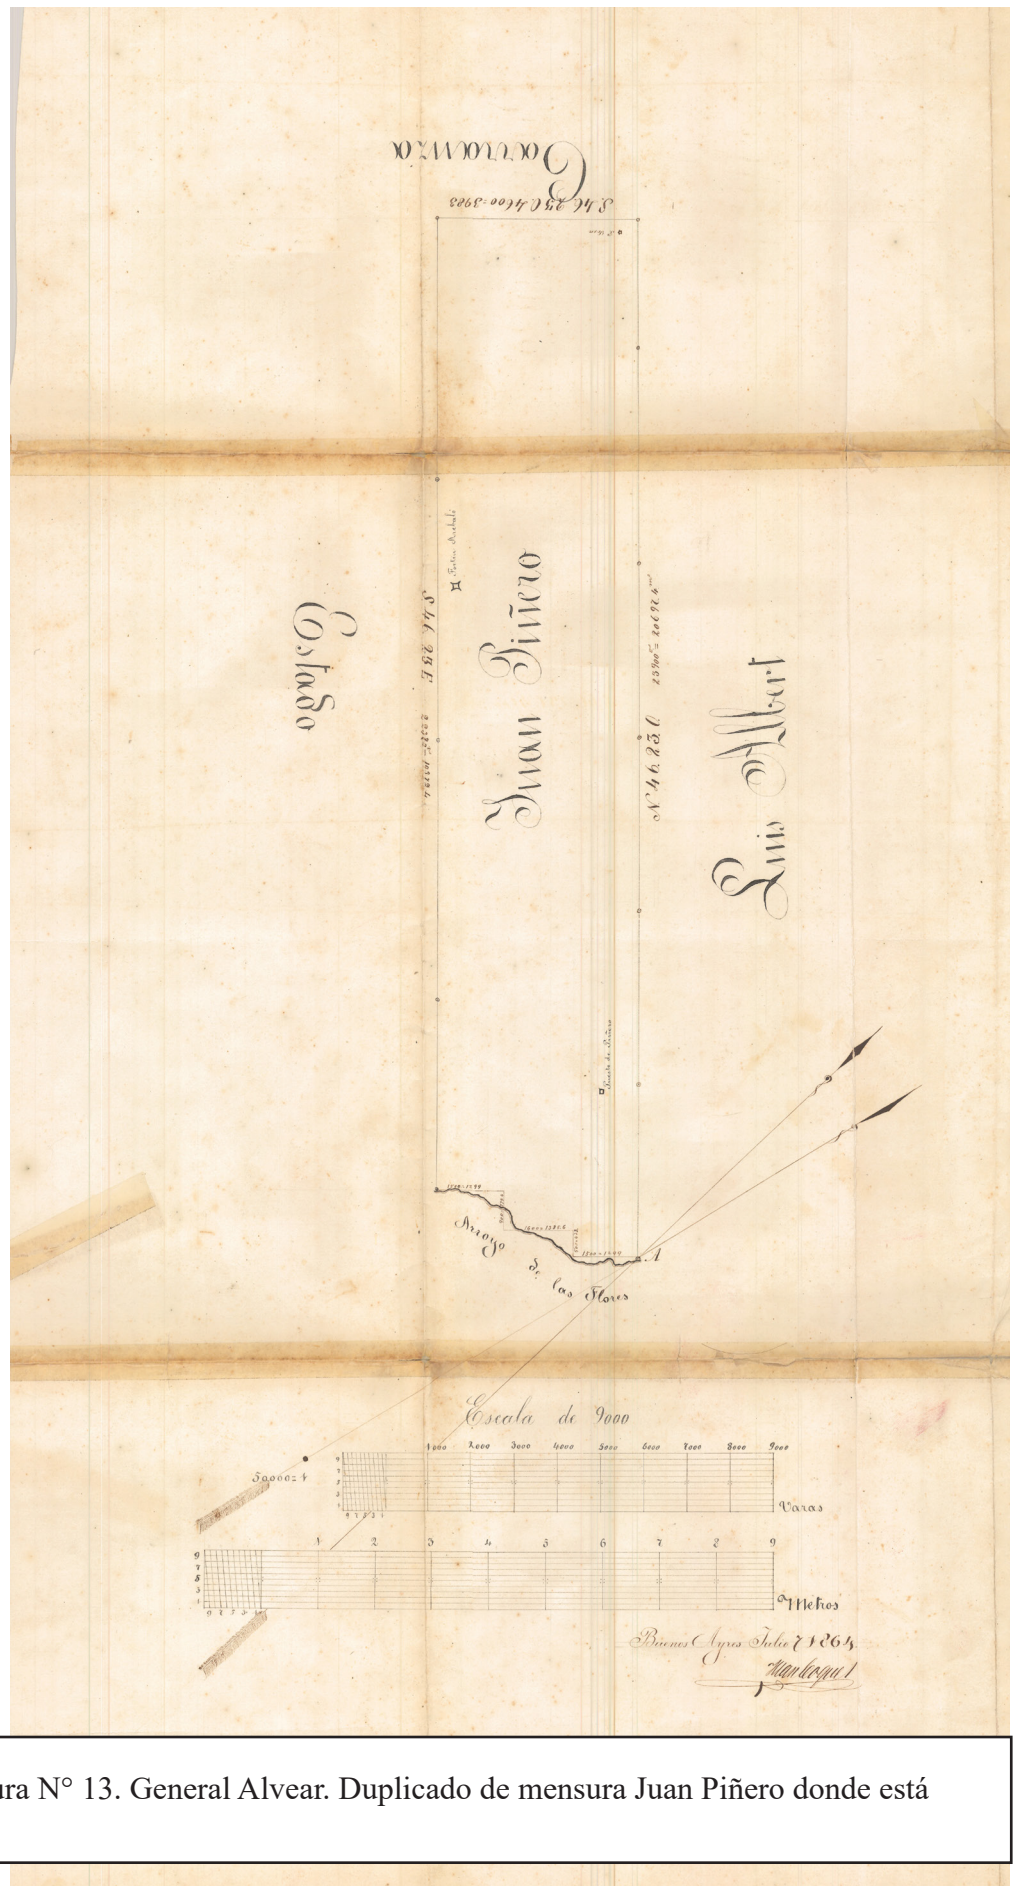 Carranza
S. 46. 25 O. 4600=3983
Estado
Fortin
S. 46. 25 E
Juan Piñero
N 46. 25. O
23900 = 20692.6
Luis Albert
Puesto de Piñero
1500=1299
1500=1299
A
Arroyo
de
las Flores
Escala de 9000
1000 2000 3000 4000 5000 6000 7000 8000 9000
50000=1
Varas
1 2 3 4 5 6 7 8 9
Metros
Buenos Ayres Julio 7 1864
ura N° 13. General Alvear. Duplicado de mensura Juan Piñero donde está